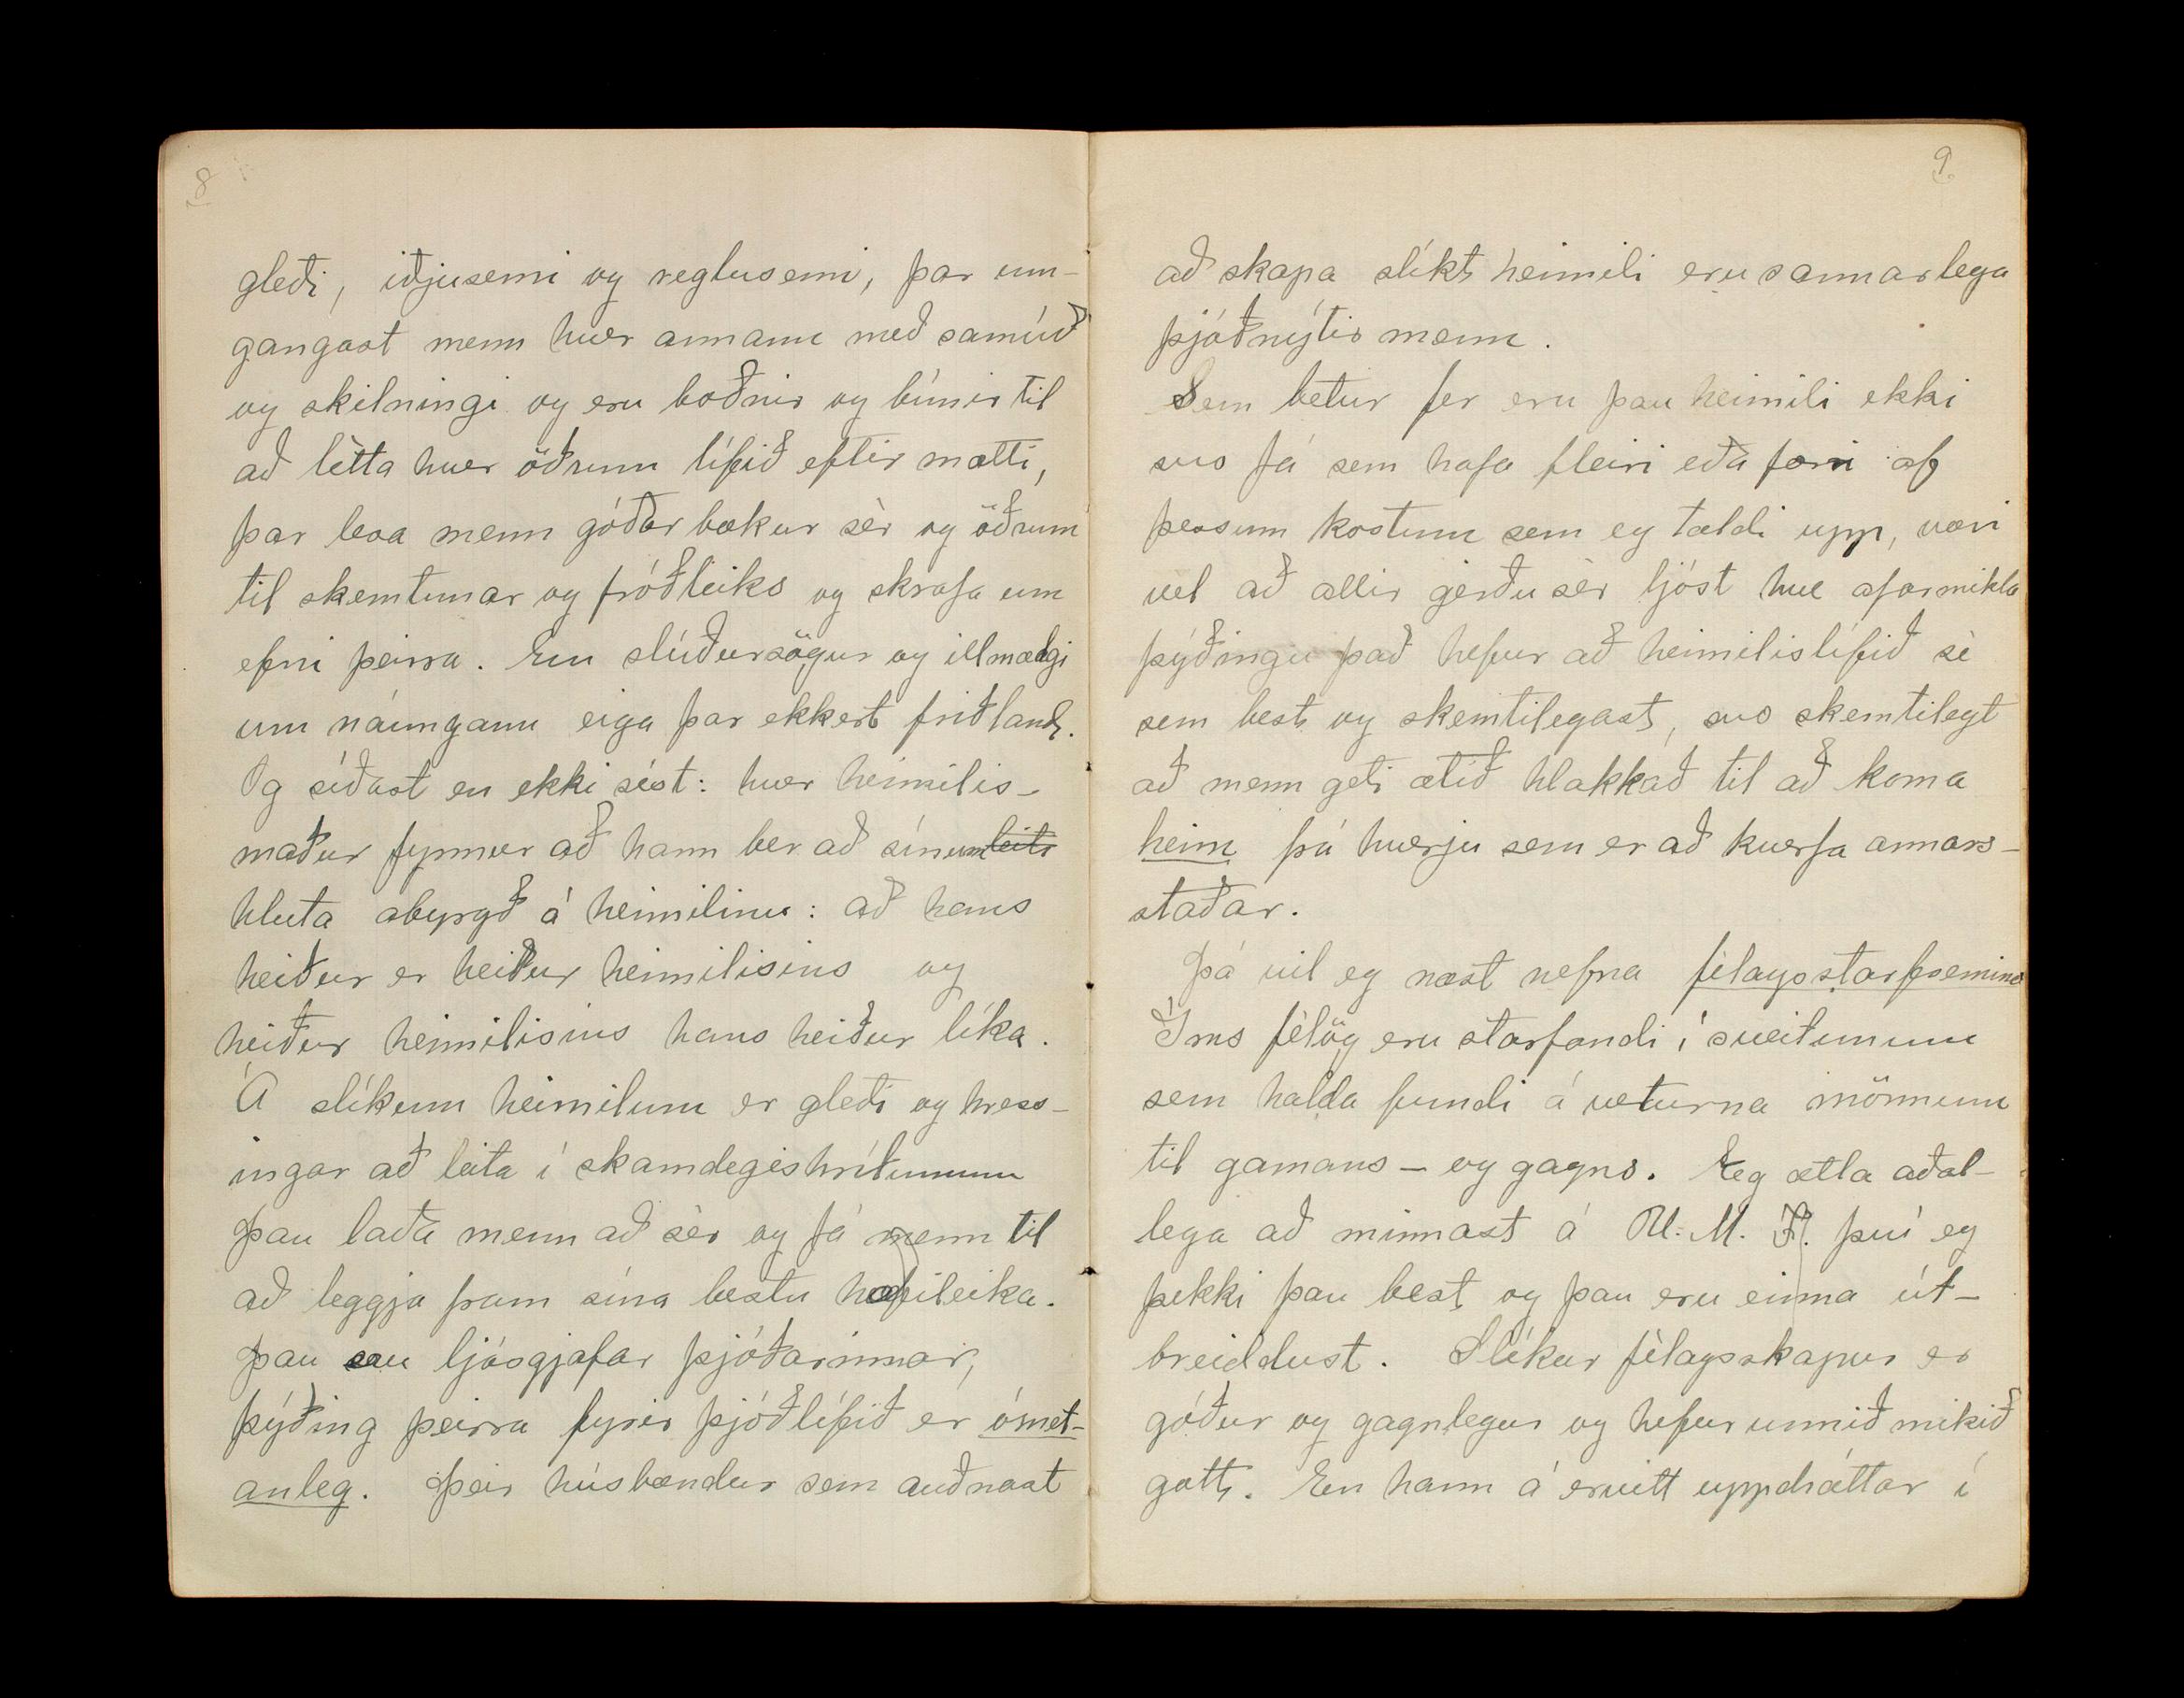 8
gleði, iðjusemi og reglusemi, þar um-
gangast menn hver annann með samúð
og skilningi og eru boðnir og búnir til
að létta hver öðrum lífið eftir mætti,
þar lesa menn góðar bækur sér og öðrum
til skemtunar og fróðleiks og skrafa um
efni þeirra. En slúðursögur og illmælgi
um náungann eiga þar ekkert friðland.
Og síðast en ekki síst: hver heimilis-
maður fynnur að hann ber að sínum leiti
hluta abyrgð á heimilinu: að hans
heiður er heiður heimilisins og
heiður heimilisins hans heiður líka.
Á slíkum heimilum er gleði og hress-
ingar að leita í skamdegishríðunum
Þau laða menn að sér og fá menn til
að leggja fram sína bestu hæfileika.
Þau eru ljósgjafar þjóðarinnar,
þýðing þeirra fyrir þjóðlífið er ómet-
anleg. Þeir húsbændur sem auðnast
9
að skapa slíkt heimili eru sannarlega
þjóðnýtir menn.
Sem betur fer eru þau heimili ekki
svo fá sem hafa fleiri eða færri af
þessum kostum sem eg taldi upp, væri
vel að allir gerðu sér ljóst hve afarmikla
þýðingu það hefur að heimilislífið sé
sem best og skemtilegast, svo skemtilegt
að menn geti ætíð hlakkað til að koma
heim frá hverju sem er að hverfa annars-
staðar.
Þá vil eg næst nefna félagsstarfsemina
Ýms félög eru starfandi í sveitunum
sem halda fundi á veturna mönnum
til gamans - og gagns. Eg ætla aðal-
lega að minnast á U. M. F. því eg
þekki þau best og þau eru einna út-
breiddust. Slíkur félagsskapur er
góður og gagnlegur og hefur unnið mikið
gott. En hann á ervitt uppdráttar í